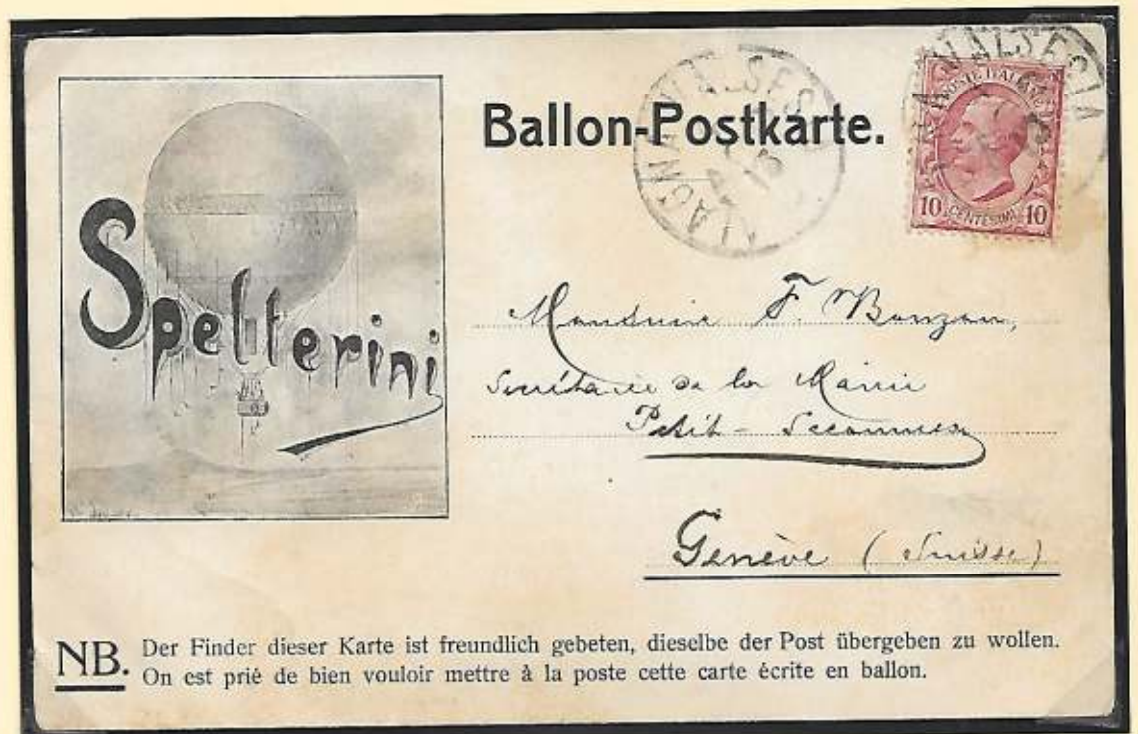 Spelterini
Ballon-Postkarte.
ALAGNA VALSESIA
15
ALAGNA VALSESIA
POSTE ITALIANE
10 CENTESIMI 10
Monsieur F.
Secrétaire de la Mairie
Petit-Saconnex
Genève (Suisse)
NB. Der Finder dieser Karte ist freundlich gebeten, dieselbe der Post übergeben zu wollen.
On est prié de bien vouloir mettre à la poste cette carte écrite en ballon.